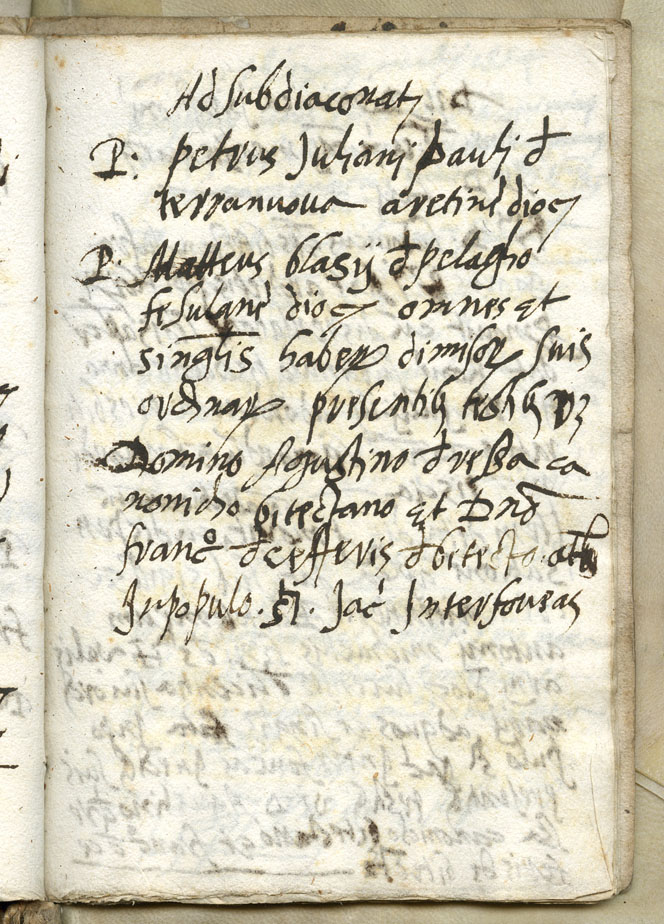 Ad Subdiaconatũ
P: petrus Juliani pauli đ
terranuova aretine dioc
P: Matteus blasij đ pelagho
fesulane dioc omnes et
singlis haber dimisor suis
ordinar. presentib testib vz
Domino Agustino đ ressa ca
nonicho bitectano et Dno
franco đ cefferis đ bitecto
In populo. S. Jac Inter foveas